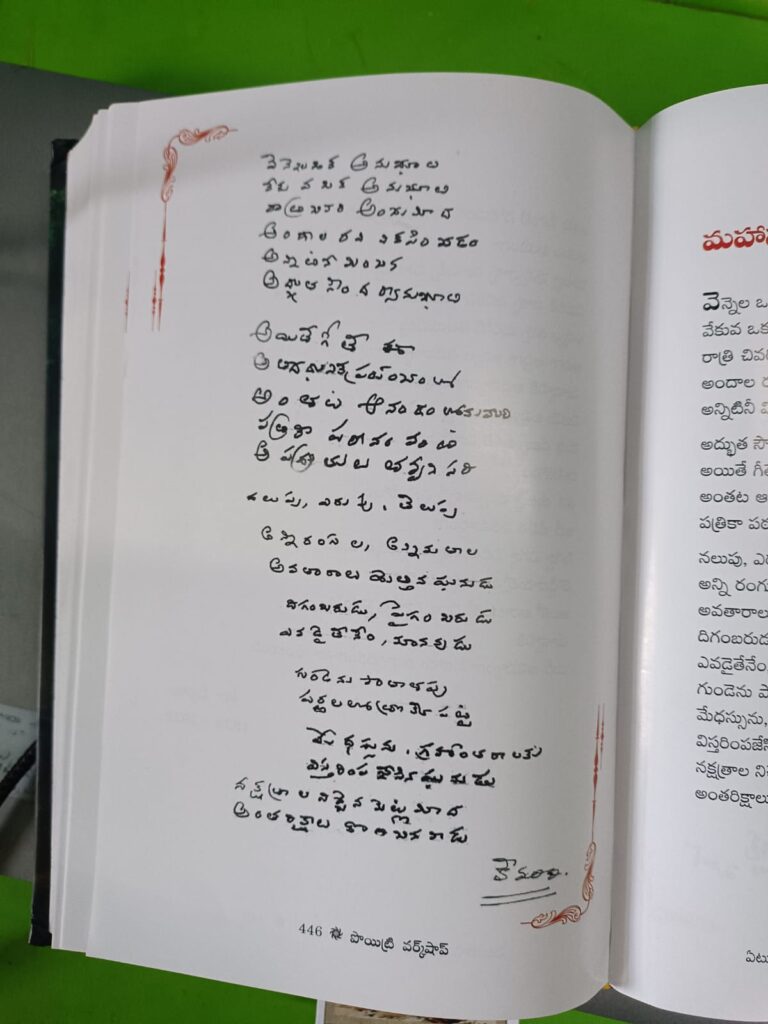 వెన్నెలఒక అనుభూతి
వేకువ ఒక అనుభూతి
రాత్రి చివరి అంచుమీద
అందాల రవి వికసించడం
అన్నిటినీ మించిన
అద్భుత సౌందర్యానుభూతి
అయితే గీతే ఈ
అంతట ఆనందం
పత్రికా పఠనం నుంచి
నలుపు, ఎరుపు, తెలుపు
అన్ని రంగుల, అన్ని కులాల
అవతారాలు మొత్తిన మనుడు
దిగంబరుడు, పైగంబరుడు
ఎవడైతేనేం, మానవుడు
గుండెను పాతాళపు
మేధస్సును, గ్రహాంతరాలకు
విస్తరింపజేసిన మనుడు
నక్షత్రాల నిచ్చెన మెట్లమీద
అంతరిక్షాల
446 పొయిట్రీ వర్క్‌షాప్
మహా
వెన్నెల ఒ
వేకువ ఒక
రాత్రి చివ
అందాల ర
అన్నిటినీ మ
అద్భుత సౌ
అయితే గీతే
అంతట ఆ
పత్రికా పఠ
నలుపు, ఎర
అన్ని రంగు
అవతారాల
దిగంబరుడ
ఎవడైతేనేం,
గుండెను పా
మేధస్సును,
విస్తరింపజేసి
నక్షత్రాల ని
అంతరిక్షాలు
ఏటు